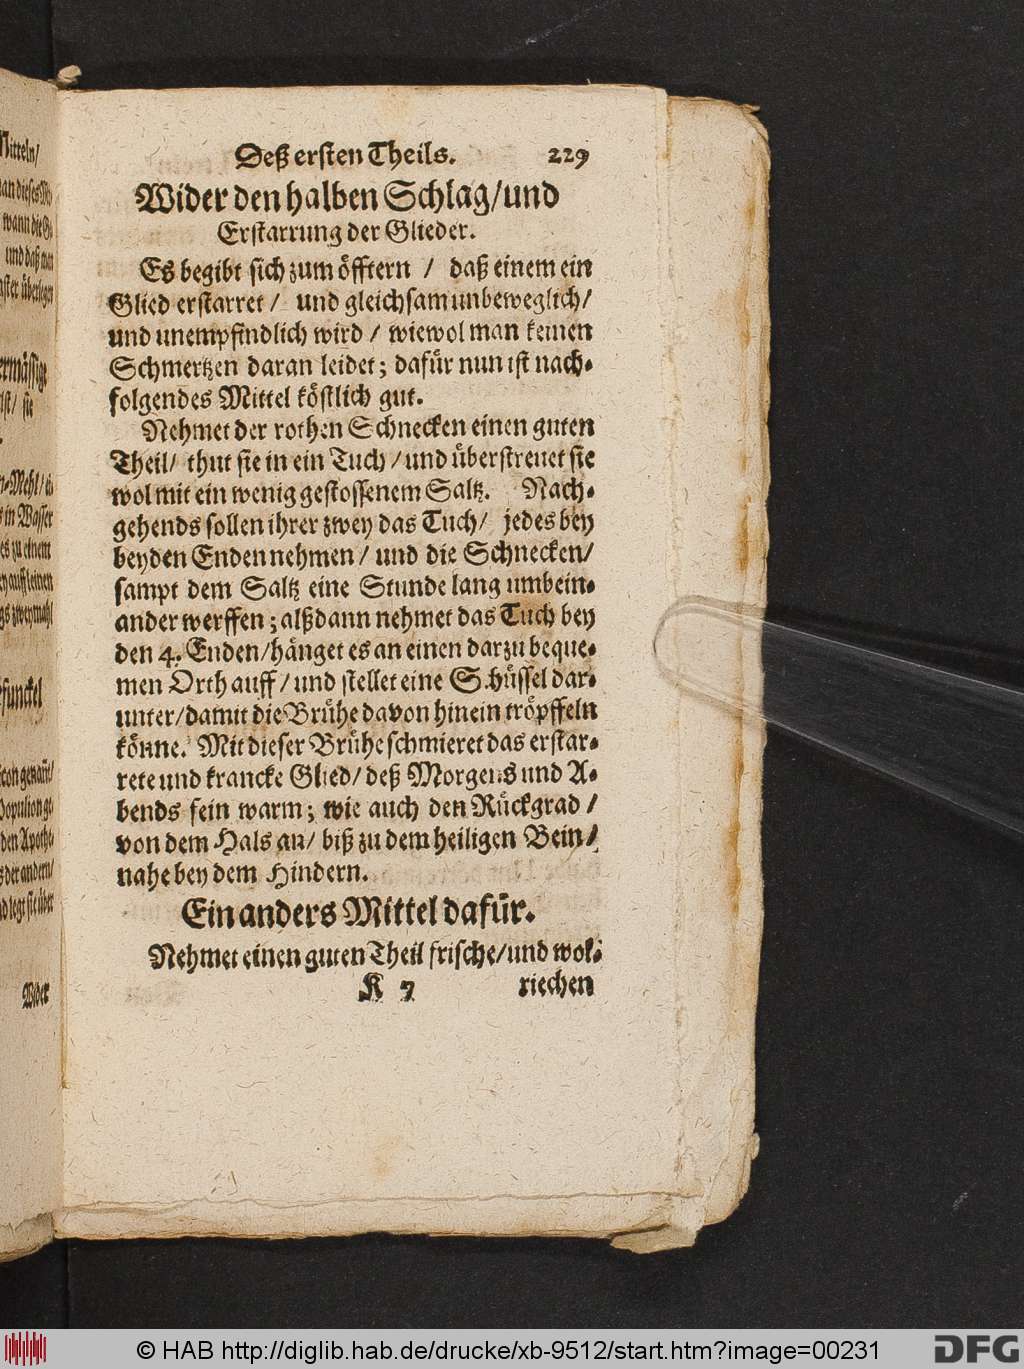 Deß ersten Theils. 229
Wider den halben Schlag/und
Erstarrung der Glieder.
Es begibt sich zum öfftern / daß einem ein
Glied erstarret / und gleichsam unbeweglich/
und unempfindlich wird / wiewol man keinen
Schmertzen daran leidet; dafür nun ist nach-
folgendes Mittel köstlich gut.
Nehmet der rothen Schnecken einen guten
Theil/ thut sie in ein Tuch / und überstreuet sie
wol mit ein wenig gestossenem Saltz. Nach-
gehends sollen ihrer zwey das Tuch/ jedes bey
beyden Enden nehmen / und die Schnecken/
sampt dem Saltz eine Stunde lang umbein-
ander werffen; alßdann nehmet das Tuch bey
den 4. Enden/hänget es an einen darzu beque-
men Orth auff / und stellet eine Schüssel dar-
unter/damit die Brühe davon hinein tröpffeln
könne. Mit dieser Brühe schmieret das erstar-
rete und krancke Glied/ deß Morgens und A-
bends fein warm; wie auch den Rückgrad /
von dem Hals an/ biß zu dem heiligen Bein/
nahe bey dem Hindern.
Ein anders Mittel dafür.
Nehmet einen guten Theil frische/und wol-
K 7 riechen
Mitteln/
wann die
und daß man
überlegen
ermässigt
ist/ sie
n-Mehl/
s in Wasser
es zu einem
zweymahl
funckel
genant/
den Apothe-
der andern/
legt sie über
Wider
© HAB http://diglib.hab.de/drucke/xb-9512/start.htm?image=00231
DFG